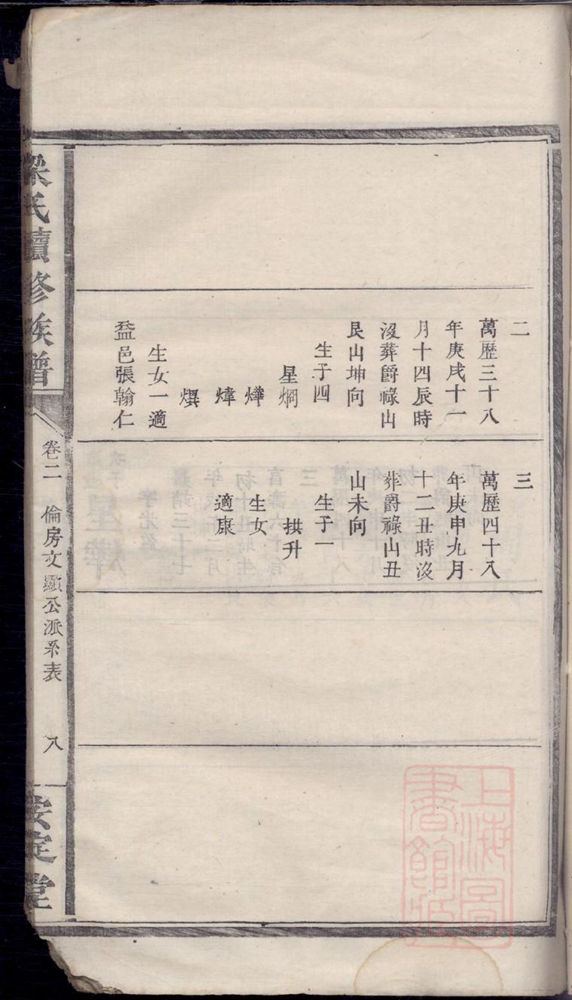 二
萬歷三十八
年庚戌十一
月十四辰時
沒葬爵祿山
艮山坤向
生子四
星烱
燁
煒
熼
生女一適
益邑張翰仁
三
萬歷四十八
年庚申九月
十二丑時沒
葬爵祿山丑
山未向
生子一
拱升
生女
適康
梁氏續修族譜
卷二 倫房文顯公派系表 八
安定堂
上海圖書館藏